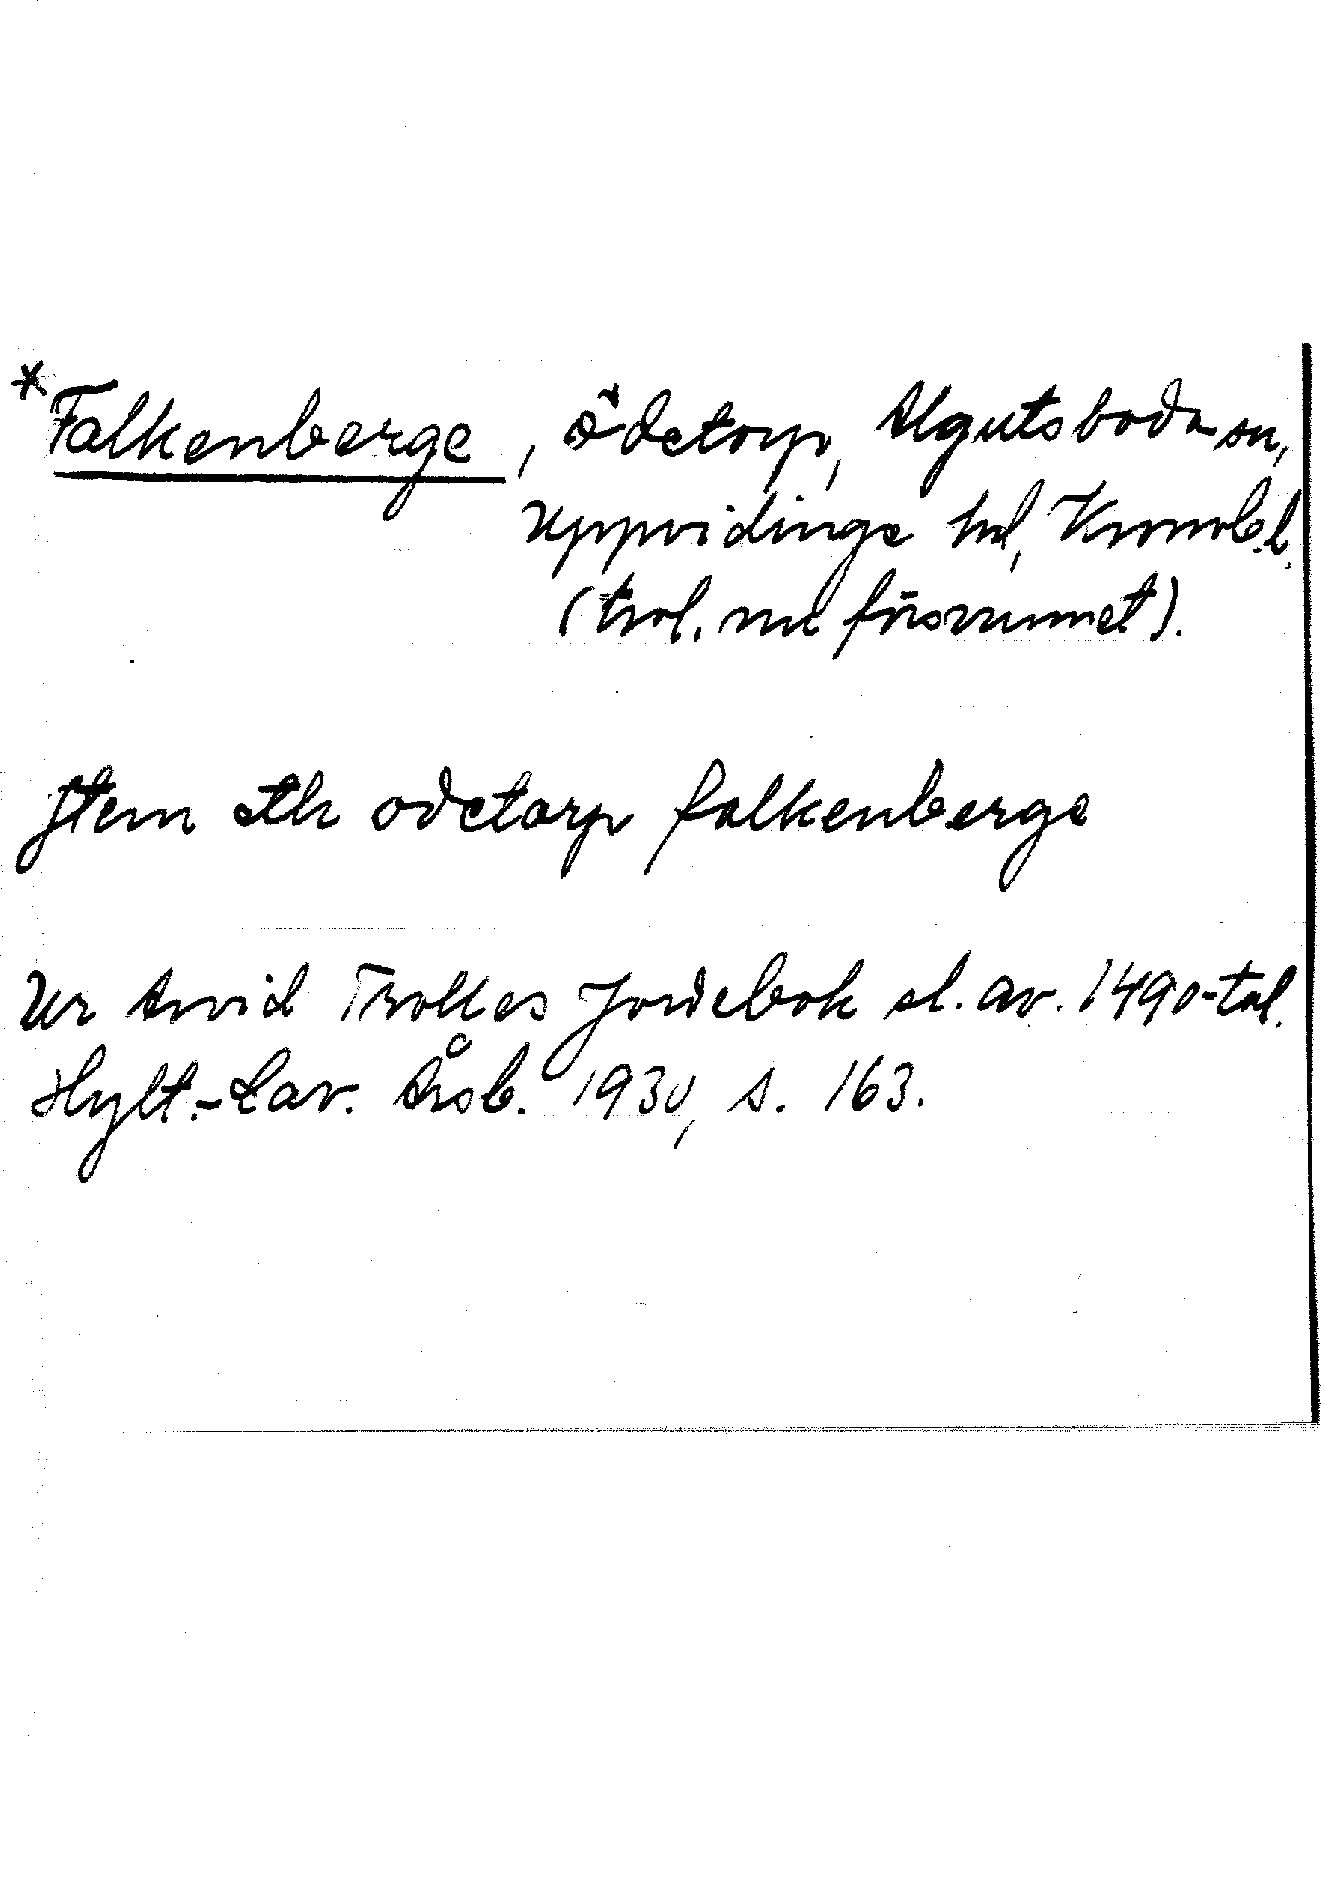 *Falkenberge, ödetorp, Algutsboda sn,
Uppvidinge hd, Kronob.l.
(trol. nu försvunnet).
Jtem eth odetorp falkenberge
Ur Arvid Trolles Jordebok sl. av. 1490-tal.
Hylt.-Cav. Årsb. 1930, s. 163.